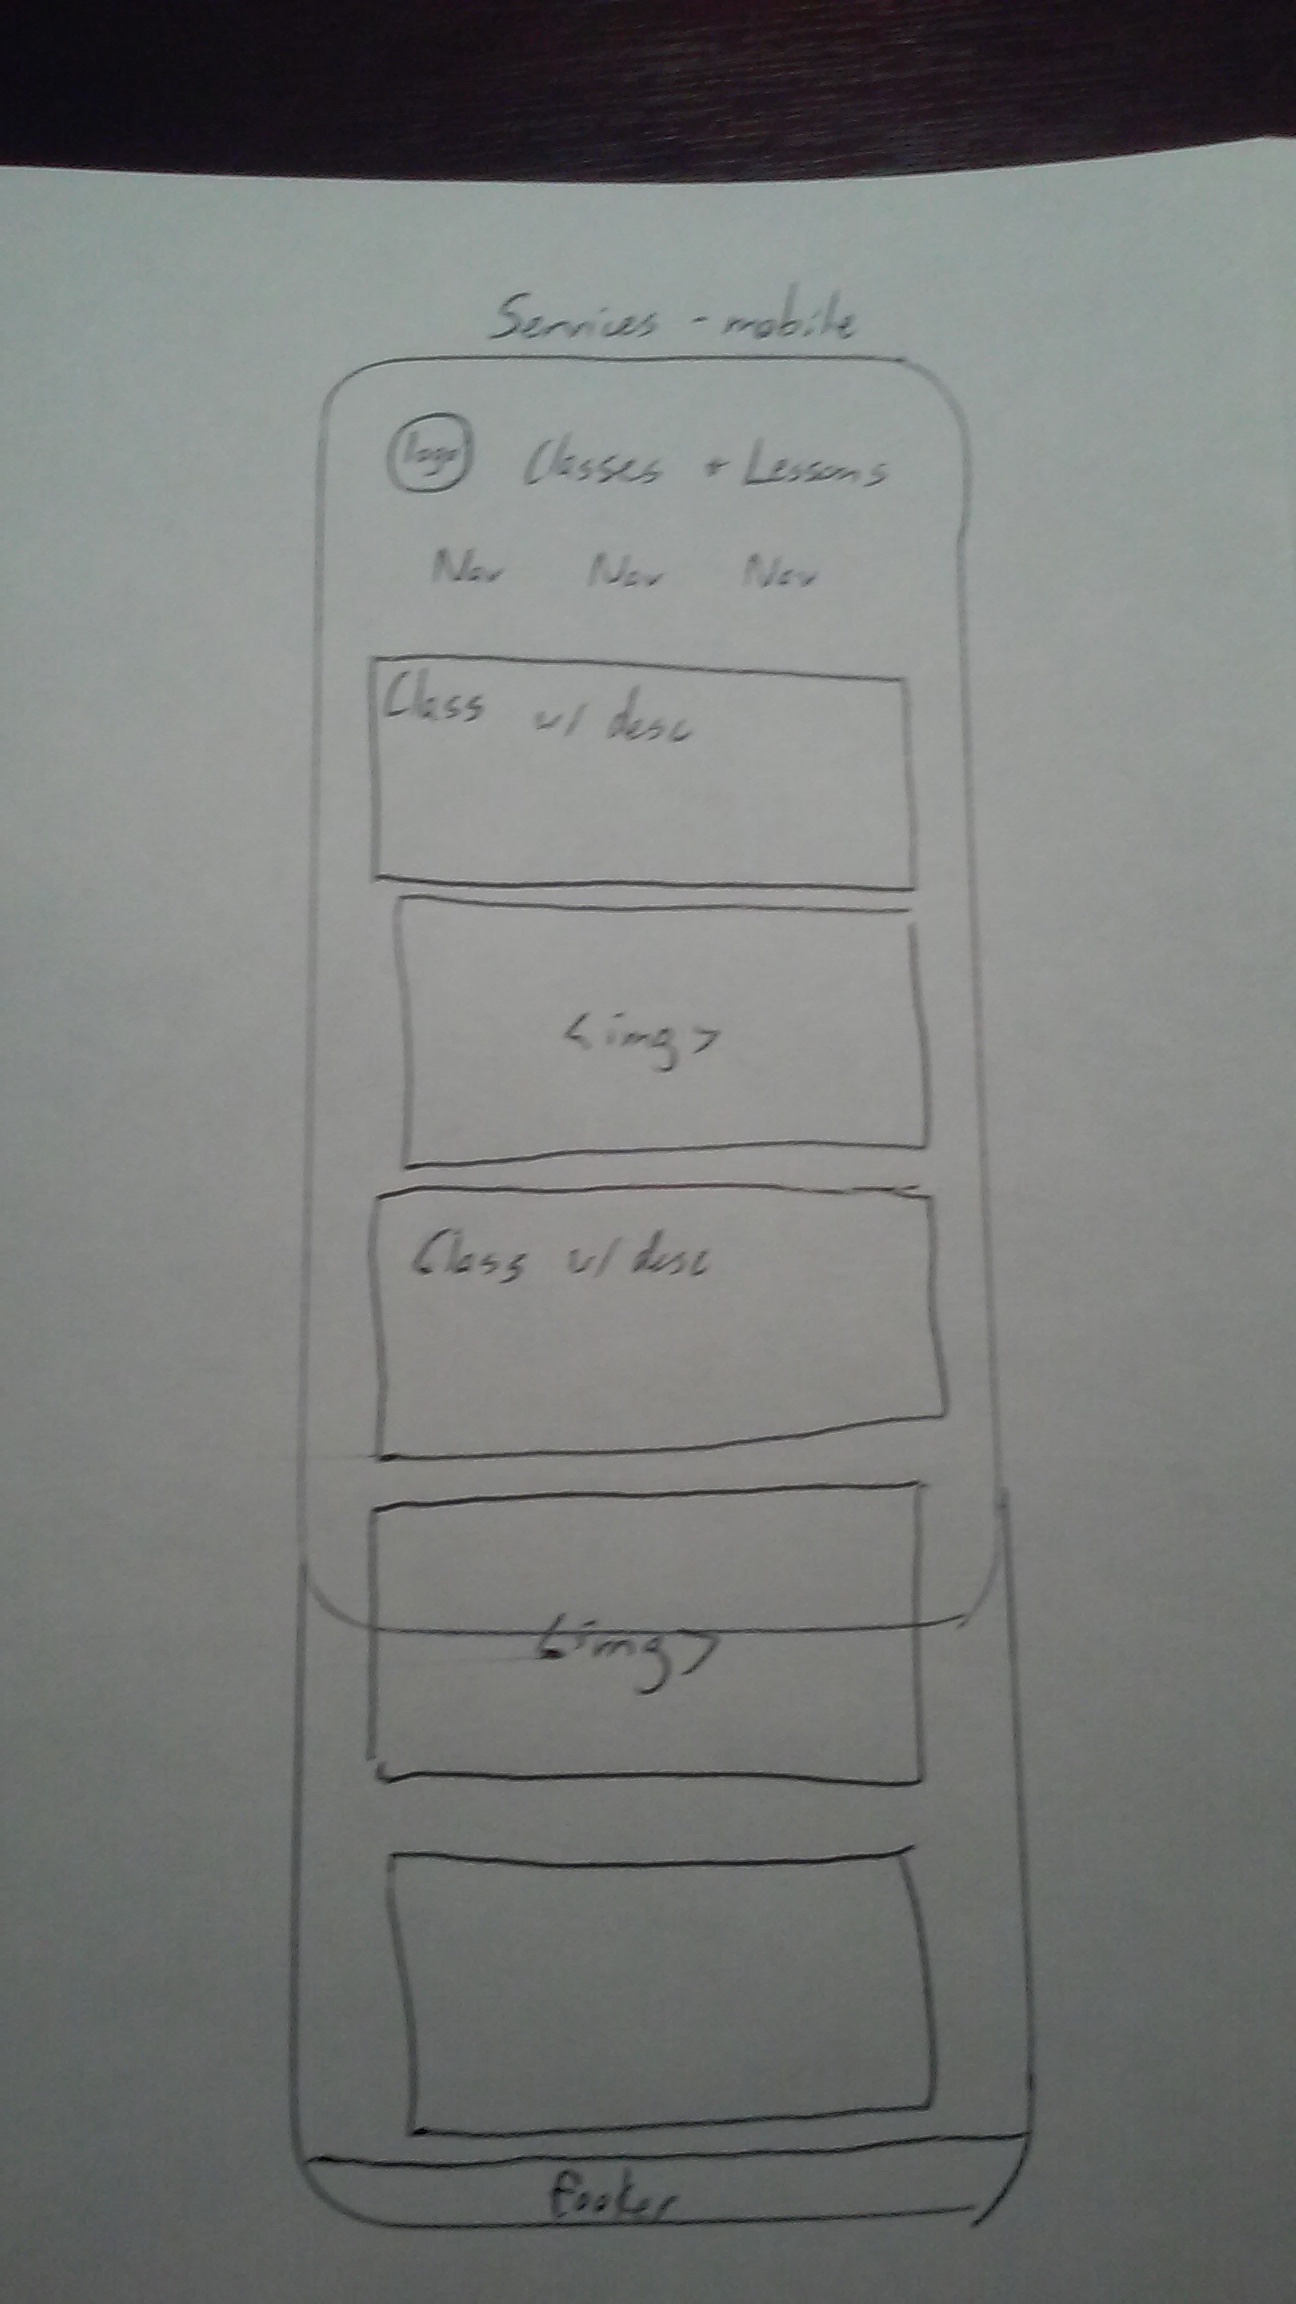 Services - mobile
logo Classes + Lessons
Nav Nav Nav
Class w/ desc
<img>
Class w/ desc
<img>
footer